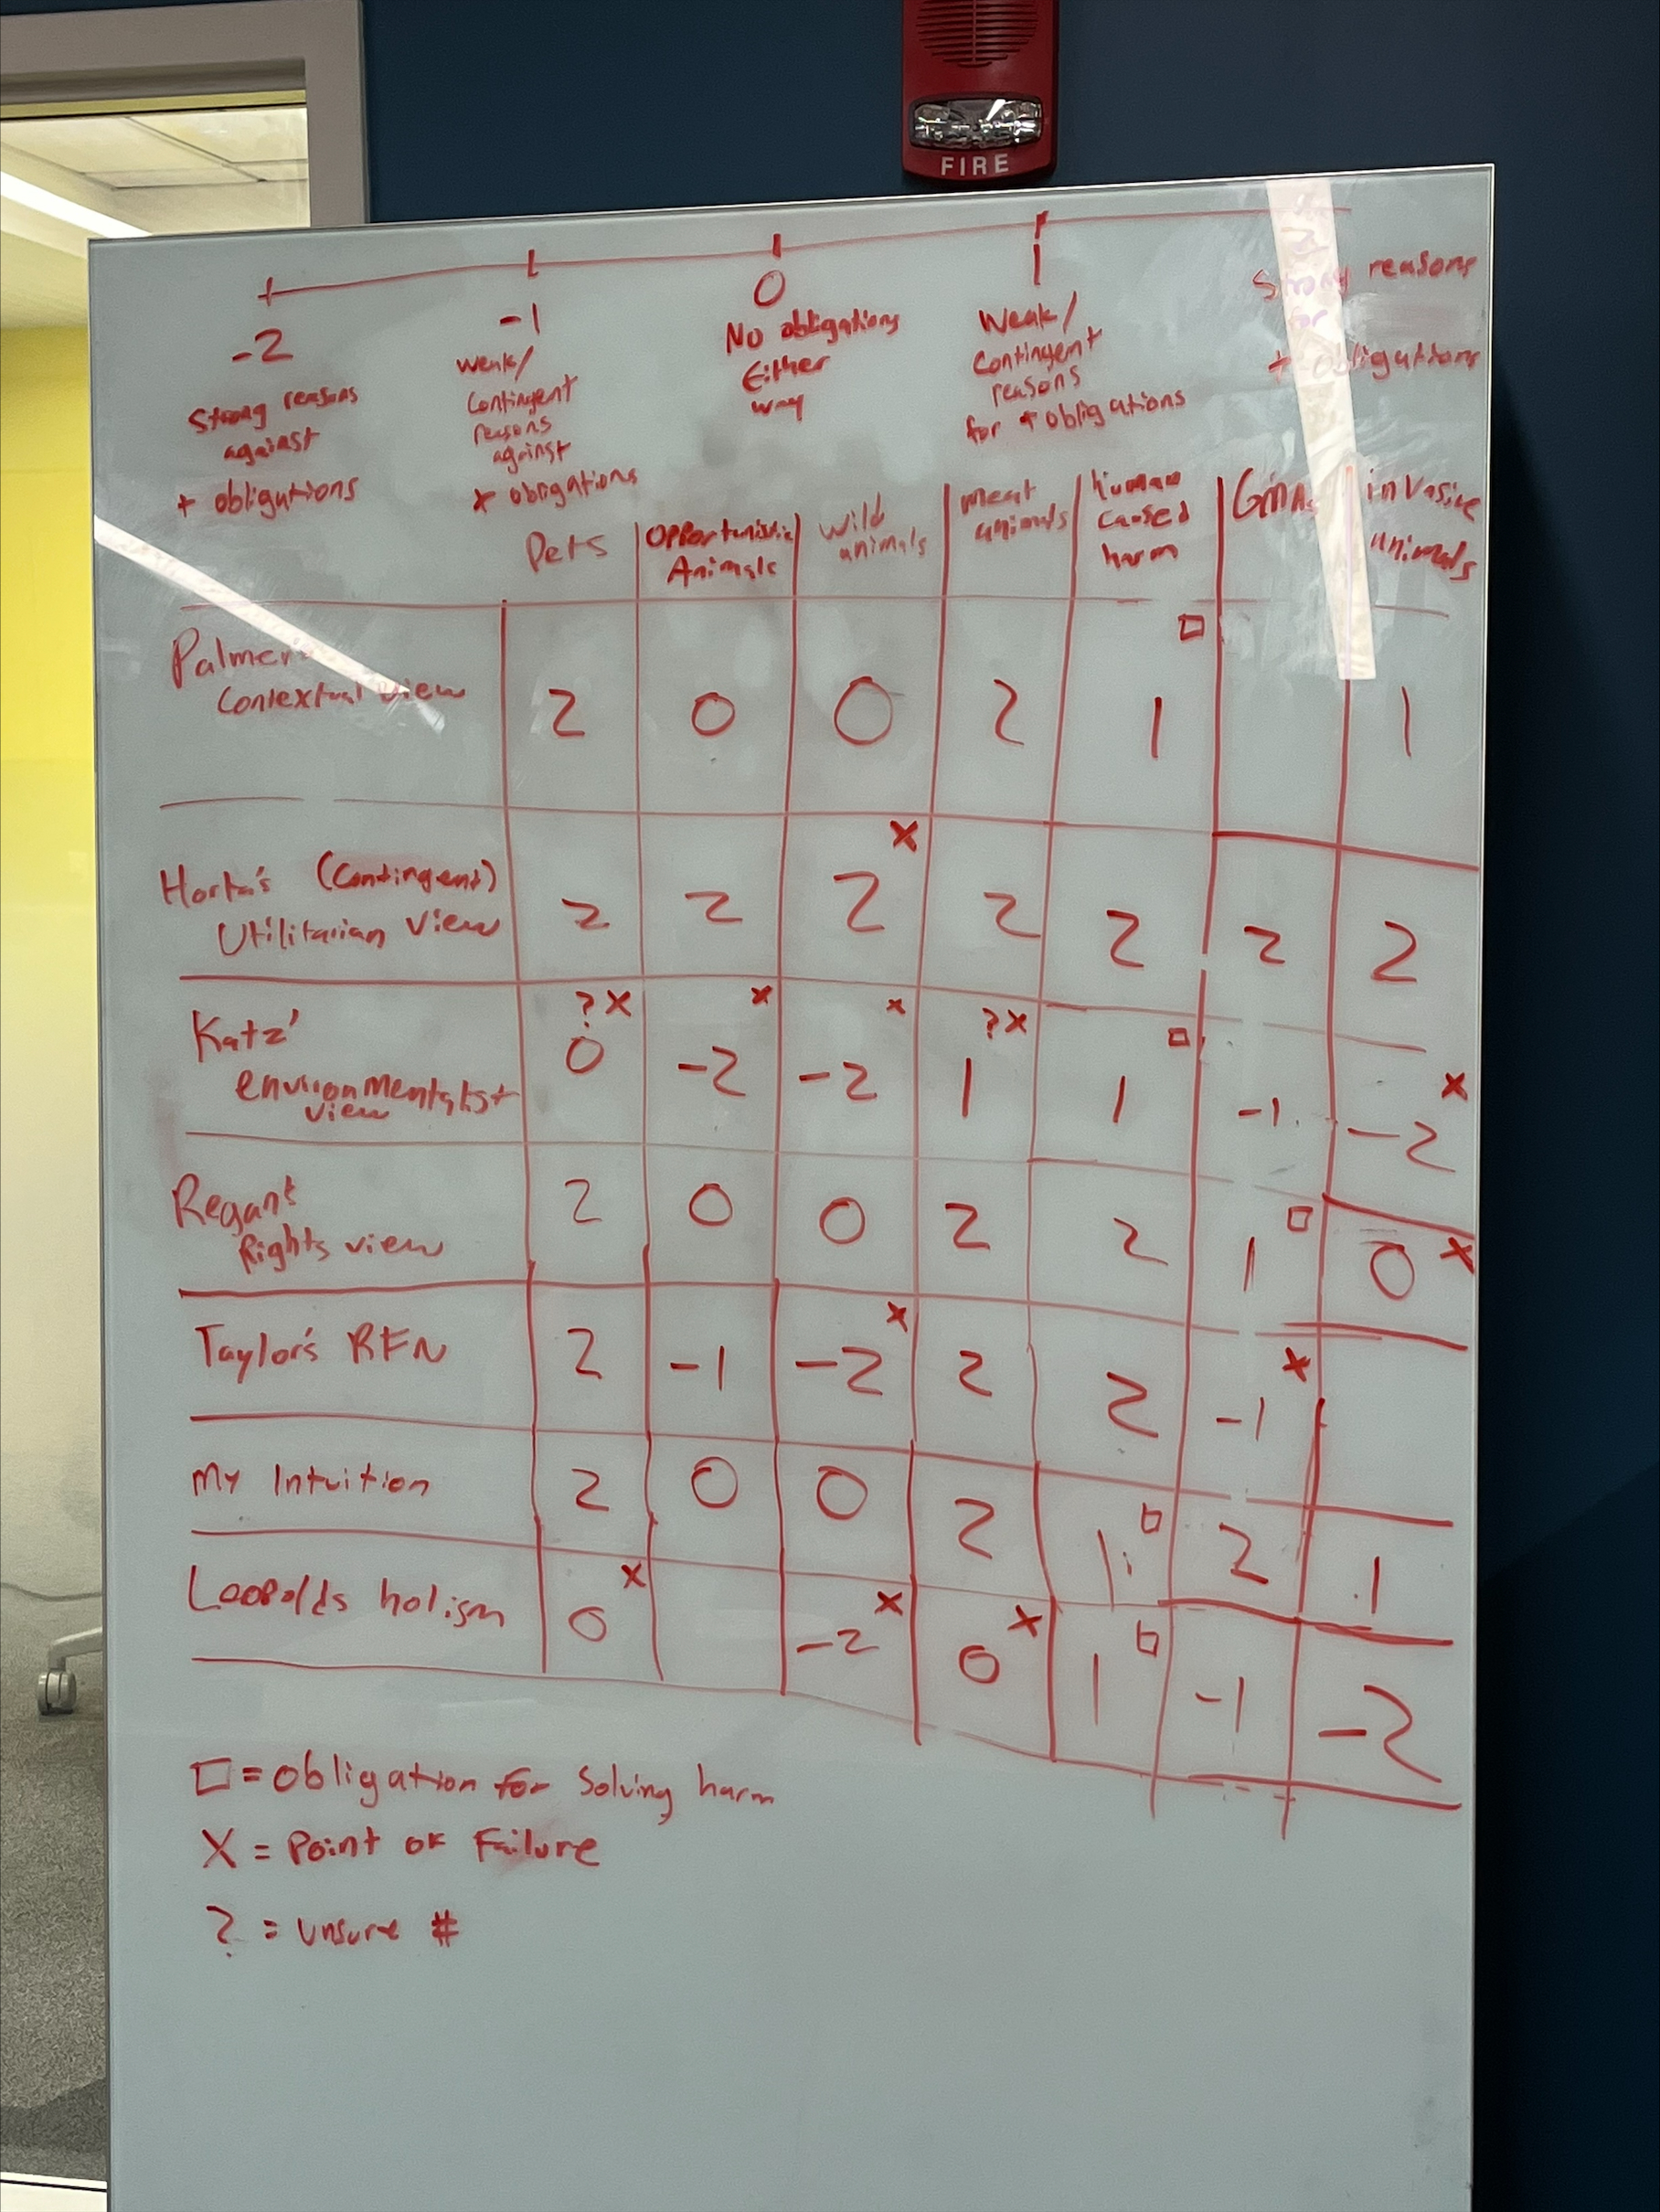 FIRE
-2 -1 0 1 2
Strong reasons against + obligations
weak/ Contingent reasons against + obligations
No obligations Either way
Weak/ Contingent reasons for + obligations
Strong reasons for + obligations
Pets Opportunistic Animals Wild animals meat animals human caused harm GMAs invasive animals
Palmer's Contextual view 2 0 0 2 1 □ 1
Horta's (Contingent) Utilitarian View 2 2 2 X 2 2 2 2
Katz' environmentalist view 0 ?X -2 X -2 X 1 ?X 1 □ -1 -2 X
Regan's Rights view 2 0 0 2 2 1 □ 0 X
Taylor's RFN 2 -1 -2 X 2 2 -1 X
My Intuition 2 0 0 2 1 □ 2 1
Leopolds holism 0 X -2 X 0 X 1 □ -1 -2
□ = obligation for Solving harm
X = Point of Failure
? = unsure #